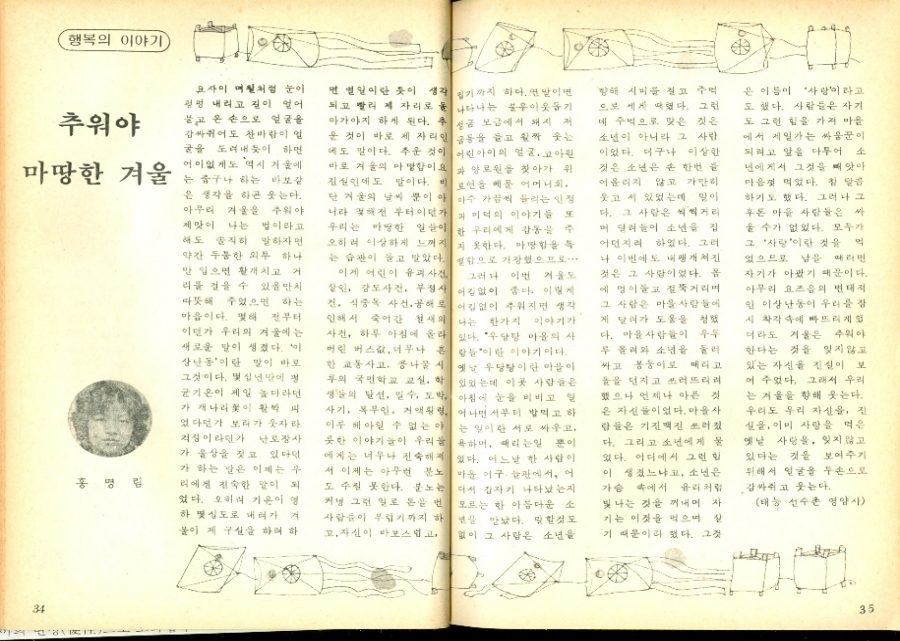 행복의 이야기
추워야
마땅한 겨울
홍 명 림
요사이 며칠처럼 눈이
펑펑 내리고 길이 얼어
불고 온 손으로 얼굴을
감싸쥐어도 찬바람이 얼
굴을 도려내듯이 하면
어이없게도 역시 겨울에
는 춥구나 하는 바보같
은 생각을 하곤 웃는다.
아무리 겨울을 추워야
제맛이 나는 법이라고
해도 솔직히 말하자면
약간 두툼한 외투 하나
만 입으면 활개치고 거
리를 걸을 수 있을만치
따뜻해 주었으면 하는
마음이다. 몇해 전부터
이던가 우리의 겨울에는
새로운 말이 생겼다. '이
상난동'이란 말이 바로
그것이다. 몇십년만에 평
균기온이 제일 높다라던
가 개나리꽃이 활짝 피
었다던가 보리가 웃자라
걱정이라던가 난로장사
가 울상을 짓고 있다던
가 하는 말은 이제는 우
리에겐 친숙한 말이 되
었다. 오히려 기온이 영
하 몇십도로 내려가 겨
울이 제 구실을 하려 하
면 별일이란 듯이 생각
되고 빨리 제 자리로 돌
아가야지 하게 된다. 추
운 것이 바로 제 자리인
데도 말이다. 추운 것이
바로 겨울의 마땅함이요
진실인데도 말이다. 비
단 겨울의 날씨 뿐이 아
니라 몇해전 부터이던가
우리는 마땅한 일들이
오히려 이상하게 느껴지
는 습관이 들고 말았다.
이제 어린이 유괴사건,
살인, 강도사건, 부정사
건, 식중독 사건, 공해로
인해서 죽어간 철새의
사건, 하루 아침에 올라
버린 버스값, 너무나 흔
한 교통사고, 콩나물 시
루의 국민학교 교실, 학
생들의 탈선, 밀수, 도박,
사기, 복부인, 거액횡령,
이루 헤아릴 수 없는 아
픗한 이야기들이 우리들
에게는 너무나 친숙해져
서 이제는 아무런 분노
도 수월 못한다. 분노는
커녕 그런 일로 돈을 번
사람들이 부럽기까지 하
고, 자신이 바보스럽고,
럽기까지 하다. 연말이면
나타나는 불우이웃돕기
성금 모금에서 돼지 저
금통을 들고 활짝 웃는
어린아이의 얼굴, 고아원
과 양로원을 찾아가 위
로연을 베푼 어머니회,
아주 가끔씩 들리는 인정
과 미덕의 이야기들 또
한 우리에게 감동을 주
지 못한다. 마땅함을 특
별함으로 가장했으므로…
그러나 이번 겨울도
어김없이 춥다. 이렇게
어김없이 추워지면 생각
나는 한가지 이야기가
있다. "우당탕 마을의 사
람들"이란 이야기이다.
옛날 우당탕이란 마을이
있었는데 이곳 사람들은
아침에 눈을 비비고 일
어나면서부터 밤먹고 하
는 일이란 서로 싸우고,
욕하며, 때리는일 뿐이
었다. 어느날 한 사람이
마을 어구 들판에서, 어
디서 갑자기 나타났는지
모르는 한 아름다운 소
년을 만났다. 말할것도
없이 그 사람은 소년을
향해 시비를 걸고 주먹
으로 세게 때렸다. 그런
데 주먹으로 맞은 것은
소년이 아니라 그 사람
이었다. 더구나 이상한
것은 소년은 손 한번 들
어올리지 않고 가만히
웃고 서 있었는데 말이
다. 그 사람은 씩씩거리
며 달려들어 소년을 집
어던지려 하였다. 그러
나 이번에도 내팽개쳐진
것은 그 사람이었다. 몸
에 멍이들고 절뚝거리며
그 사람은 마을사람들에
게 달려가 도움을 청했
다. 마을사람들이 우두
루 몰려와 소년을 둘러
싸고 몽둥이로 때리고
돌을 던지고 쓰러뜨리려
했으나 언제나 아픈 것
은 자신들이었다. 마을사
람들은 기진맥진 쓰러졌
다. 그리고 소년에게 물
었다. 어디에서 그런 힘
이 생겼느냐고, 소년은
가슴 속에서 유리처럼
빛나는 것을 꺼내며 자
기는 이것을 먹으며 살
기 때문이라 했다. 그것
은 이름이 '사랑'이라고
도 했다. 사람들은 자기
도 그런 힘을 가져 마을
에서 제일가는 싸움꾼이
되려고 앞을 다투어 소
년에게서 그것을 빼앗아
마음껏 먹었다. 참 달콤
하기도 했다. 그러나 그
후론 마을 사람들은 싸
울 수가 없었다. 모두가
그 '사랑'이란 것을 먹
었으므로 남을 때리면
자기가 아팠기 때문이다.
아무리 요즈음의 변태적
인 이상난동이 우리를 잠
시 착각속에 빠뜨리게했
더라도 겨울은 추워야
한다는 것을 잊지않고
있는 자신을 진실이 보
여 주었다. 그래서 우리
는 겨울을 향해 웃는다.
우리도 우리 자신을, 진
실을, 이미 사랑을 먹은
옛날 사랑을, 잊지않고
있다는 것을 보여주기
위해서 얼굴을 두손으로
감싸쥐고 웃는다.
(태능 선수촌 영양사)
34
35